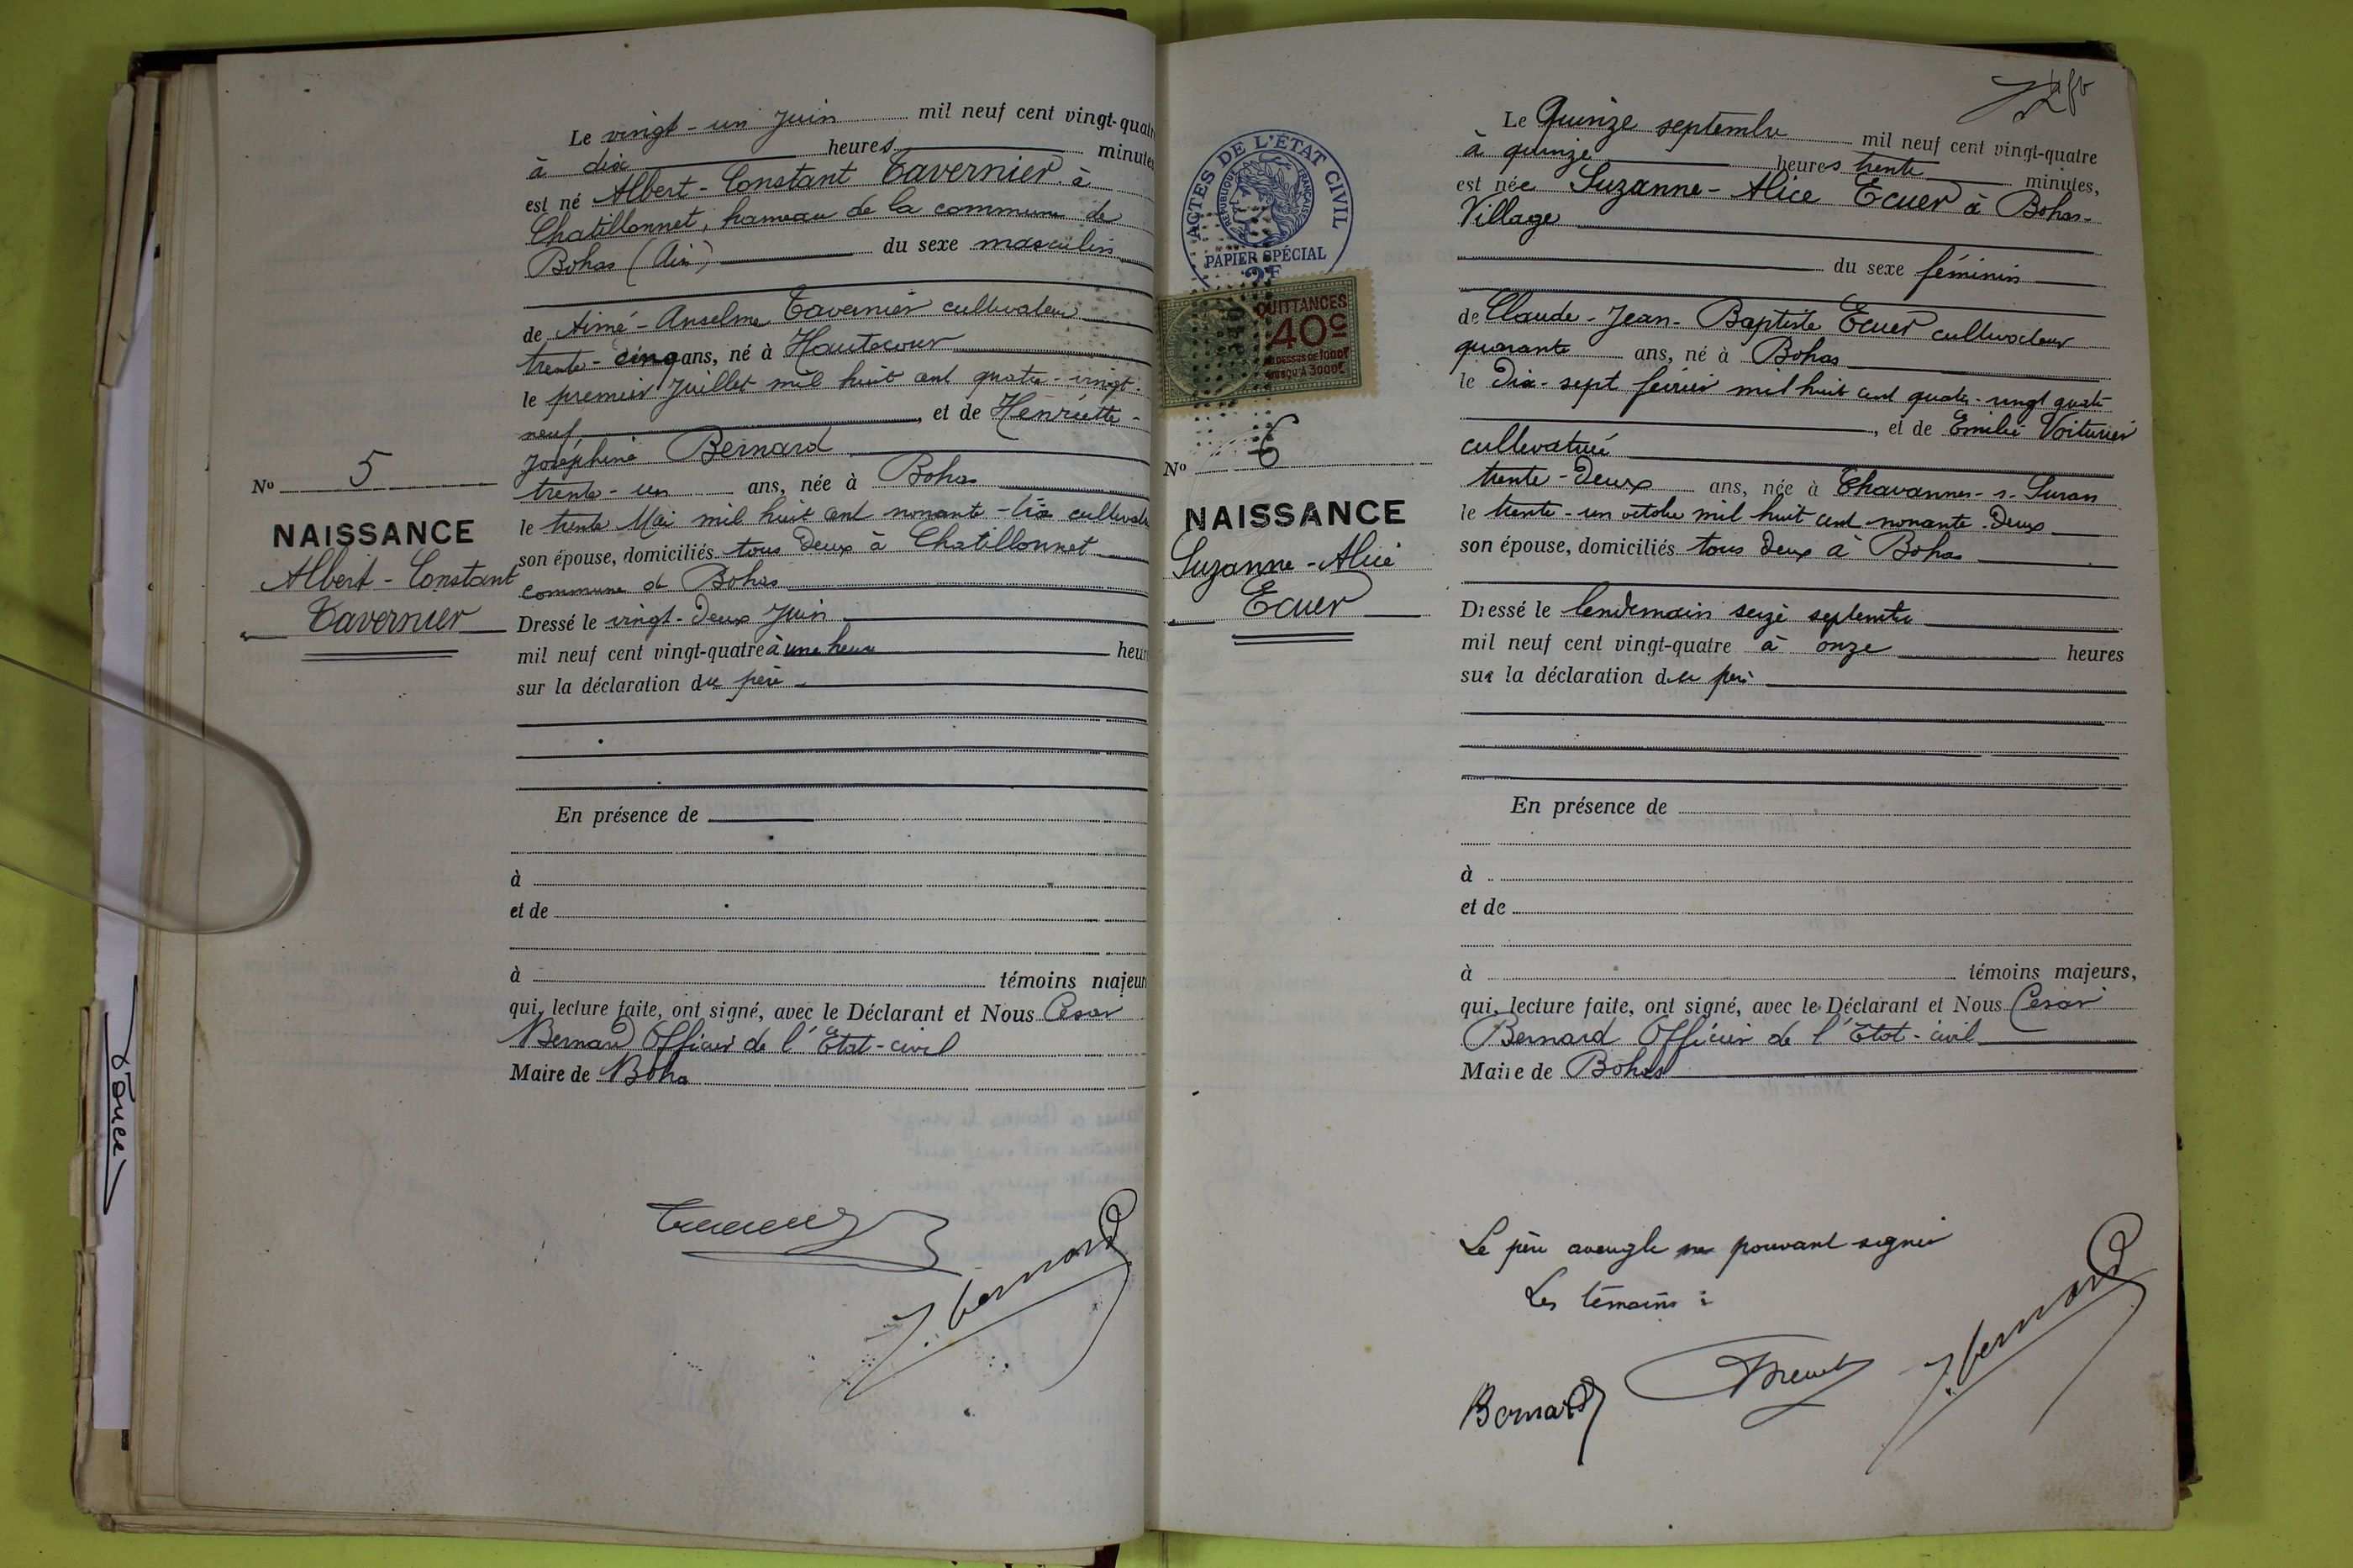 Le vingt-un juin mil neuf cent vingt-quatr
à dix heures minutes
est né Albert-Constant Tavernier à
Chatillonnet, hameau de la commune de
Bohas (Ain) du sexe masculin
de Aimé-Anselme Tavernier cultivateur
trente-cinq ans, né à Hautecour
le premier juillet mil huit cent quatre-vingt-
neuf, et de Henriette-
Joséphine Bernard
trente-un ans, née à Bohas
le trente Mai mil huit cent nonante-trois cultivat
son épouse, domiciliés tous deux à Chatillonnet
commune de Bohas
Dressé le vingt-deux juin
mil neuf cent vingt-quatre à une heure heur
sur la déclaration du père
En présence de
à
et de
à témoins majeur
qui, lecture faite, ont signé, avec le Déclarant et Nous César
Bernard Officier de l'Etat-civil
Maire de Bohas
No 5
NAISSANCE
Albert-Constant
Tavernier
J. Bernard
ACTES DE L'ÉTAT CIVIL
RÉPUBLIQUE FRANÇAISE
PAPIER SPÉCIAL
2F
QUITTANCES
40c
AU DESSUS DE 1000F
JUSQU'A 3000F
No 6
NAISSANCE
Suzanne-Alice
Ecuer
Le Quinze septembre mil neuf cent vingt-quatre
à quinze heures trente minutes,
est née Suzanne-Alice Ecuer à Bohas-
Village
du sexe féminin
de Claude-Jean-Baptiste Ecuer cultivateur
quarante ans, né à Bohas
le dix-sept février mil huit cent quatre-vingt quatre
, et de Emilie Voiturier
cultivatrice
trente-deux ans, née à Chavannes-s-Suran
le trente-un octobre mil huit cent nonante-deux
son épouse, domiciliés tous deux à Bohas
Dressé le lendemain seize septembre
mil neuf cent vingt-quatre à onze heures
sur la déclaration du père
En présence de
à
et de
à témoins majeurs,
qui, lecture faite, ont signé, avec le Déclarant et Nous César
Bernard Officier de l'Etat-civil
Maire de Bohas
Le père aveugle ne pouvant signer
Les témoins :
Bernard
J. Bernard